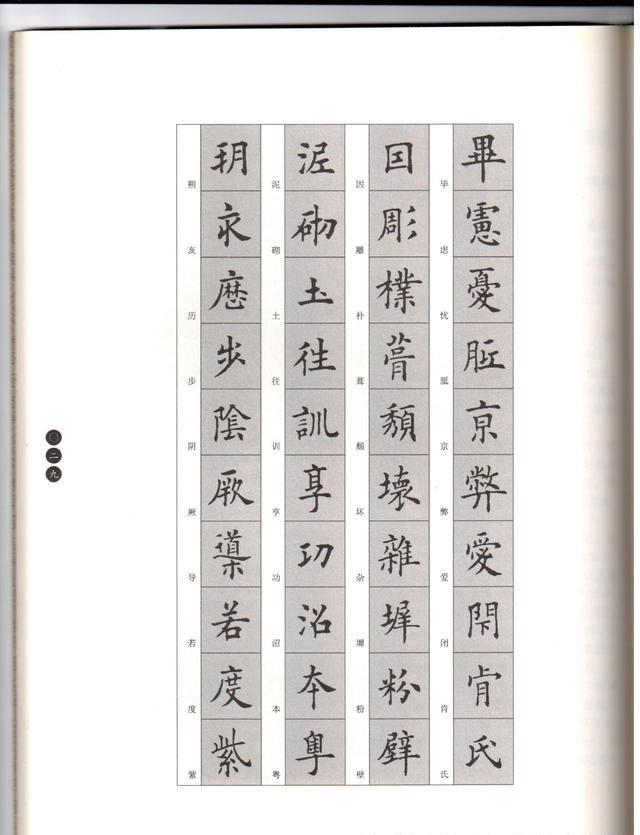 畢慮憂胝京弊愛閇肯氏
毕虑忧胝京弊爱闭肯氏
因彫樸葺頹壞雜墀粉壁
因雕朴葺颓坏杂墀粉壁
泥砌土往訓享功沼本粤
泥砌土往训亨功沼本粤
朔亥歷步陰厥導若度紫
朔亥历步阴厥导若度紫
〇二九